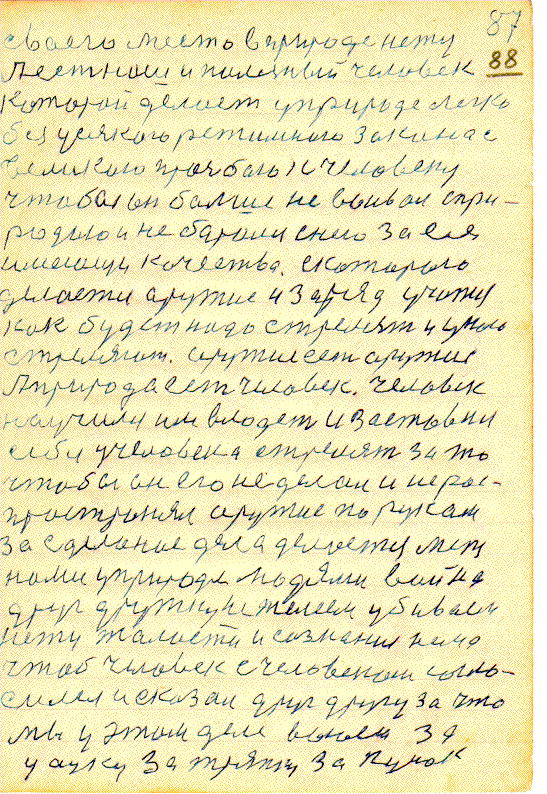 87
своего место в природе нету 88
Лестнои и полезный человек
Которой делает у природе легко
без усякого режимного закона с
великою прозбою к человеку
чтобы он больше не воивал с при-
родою и не боролси с нею за ея
имеющи качества. с которого
делаетси аружие и заряд
как будет надо стрелят и у кого
стрелят. аружие ест аружие
Априрода ест человек. человек
научили им владет и заставили
себя у человека стрелят за то
чтобы он его не делал и не рас-
прострянял аружие по рукам
За сделаное дела делается меж
нами у природе людями война
друг дружку не жалеем убиваем
нету жалости и сознания нема
чтоб человек с человеком согло-
силси и сказал друг другу за что
мы у этом деле воюем за
у ауку за тряпку за кусок